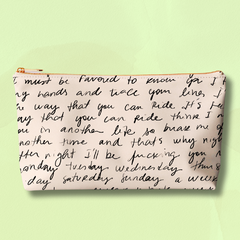 I must be favored to know ya I
my hands and trace your lines
the way that you can ride. It's
way that you can ride think I
you in another life so brace me
another time and that's why night
after night I'll be fucking you
monday tuesday wednesday thurs
day saturday sunday a week